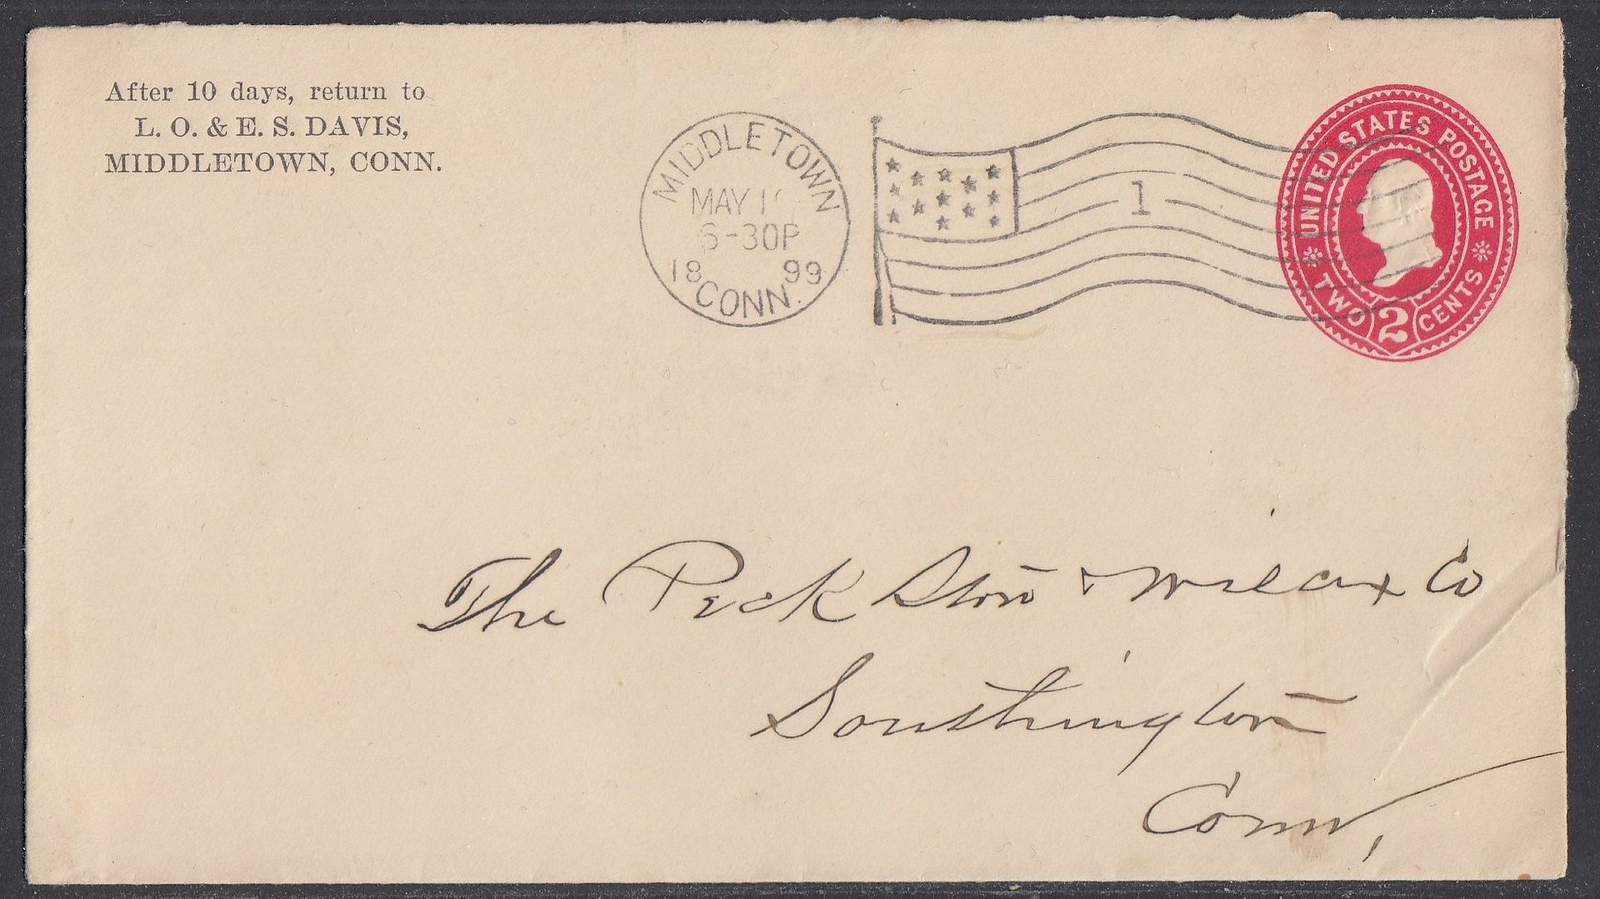 After 10 days, return to
L. O. & E. S. DAVIS,
MIDDLETOWN, CONN.
MIDDLETOWN
MAY
6-30P
18 99
CONN.
1
UNITED STATES POSTAGE
TWO 2 CENTS
The Peck Stow & Wilcox Co
Southington
Conn,